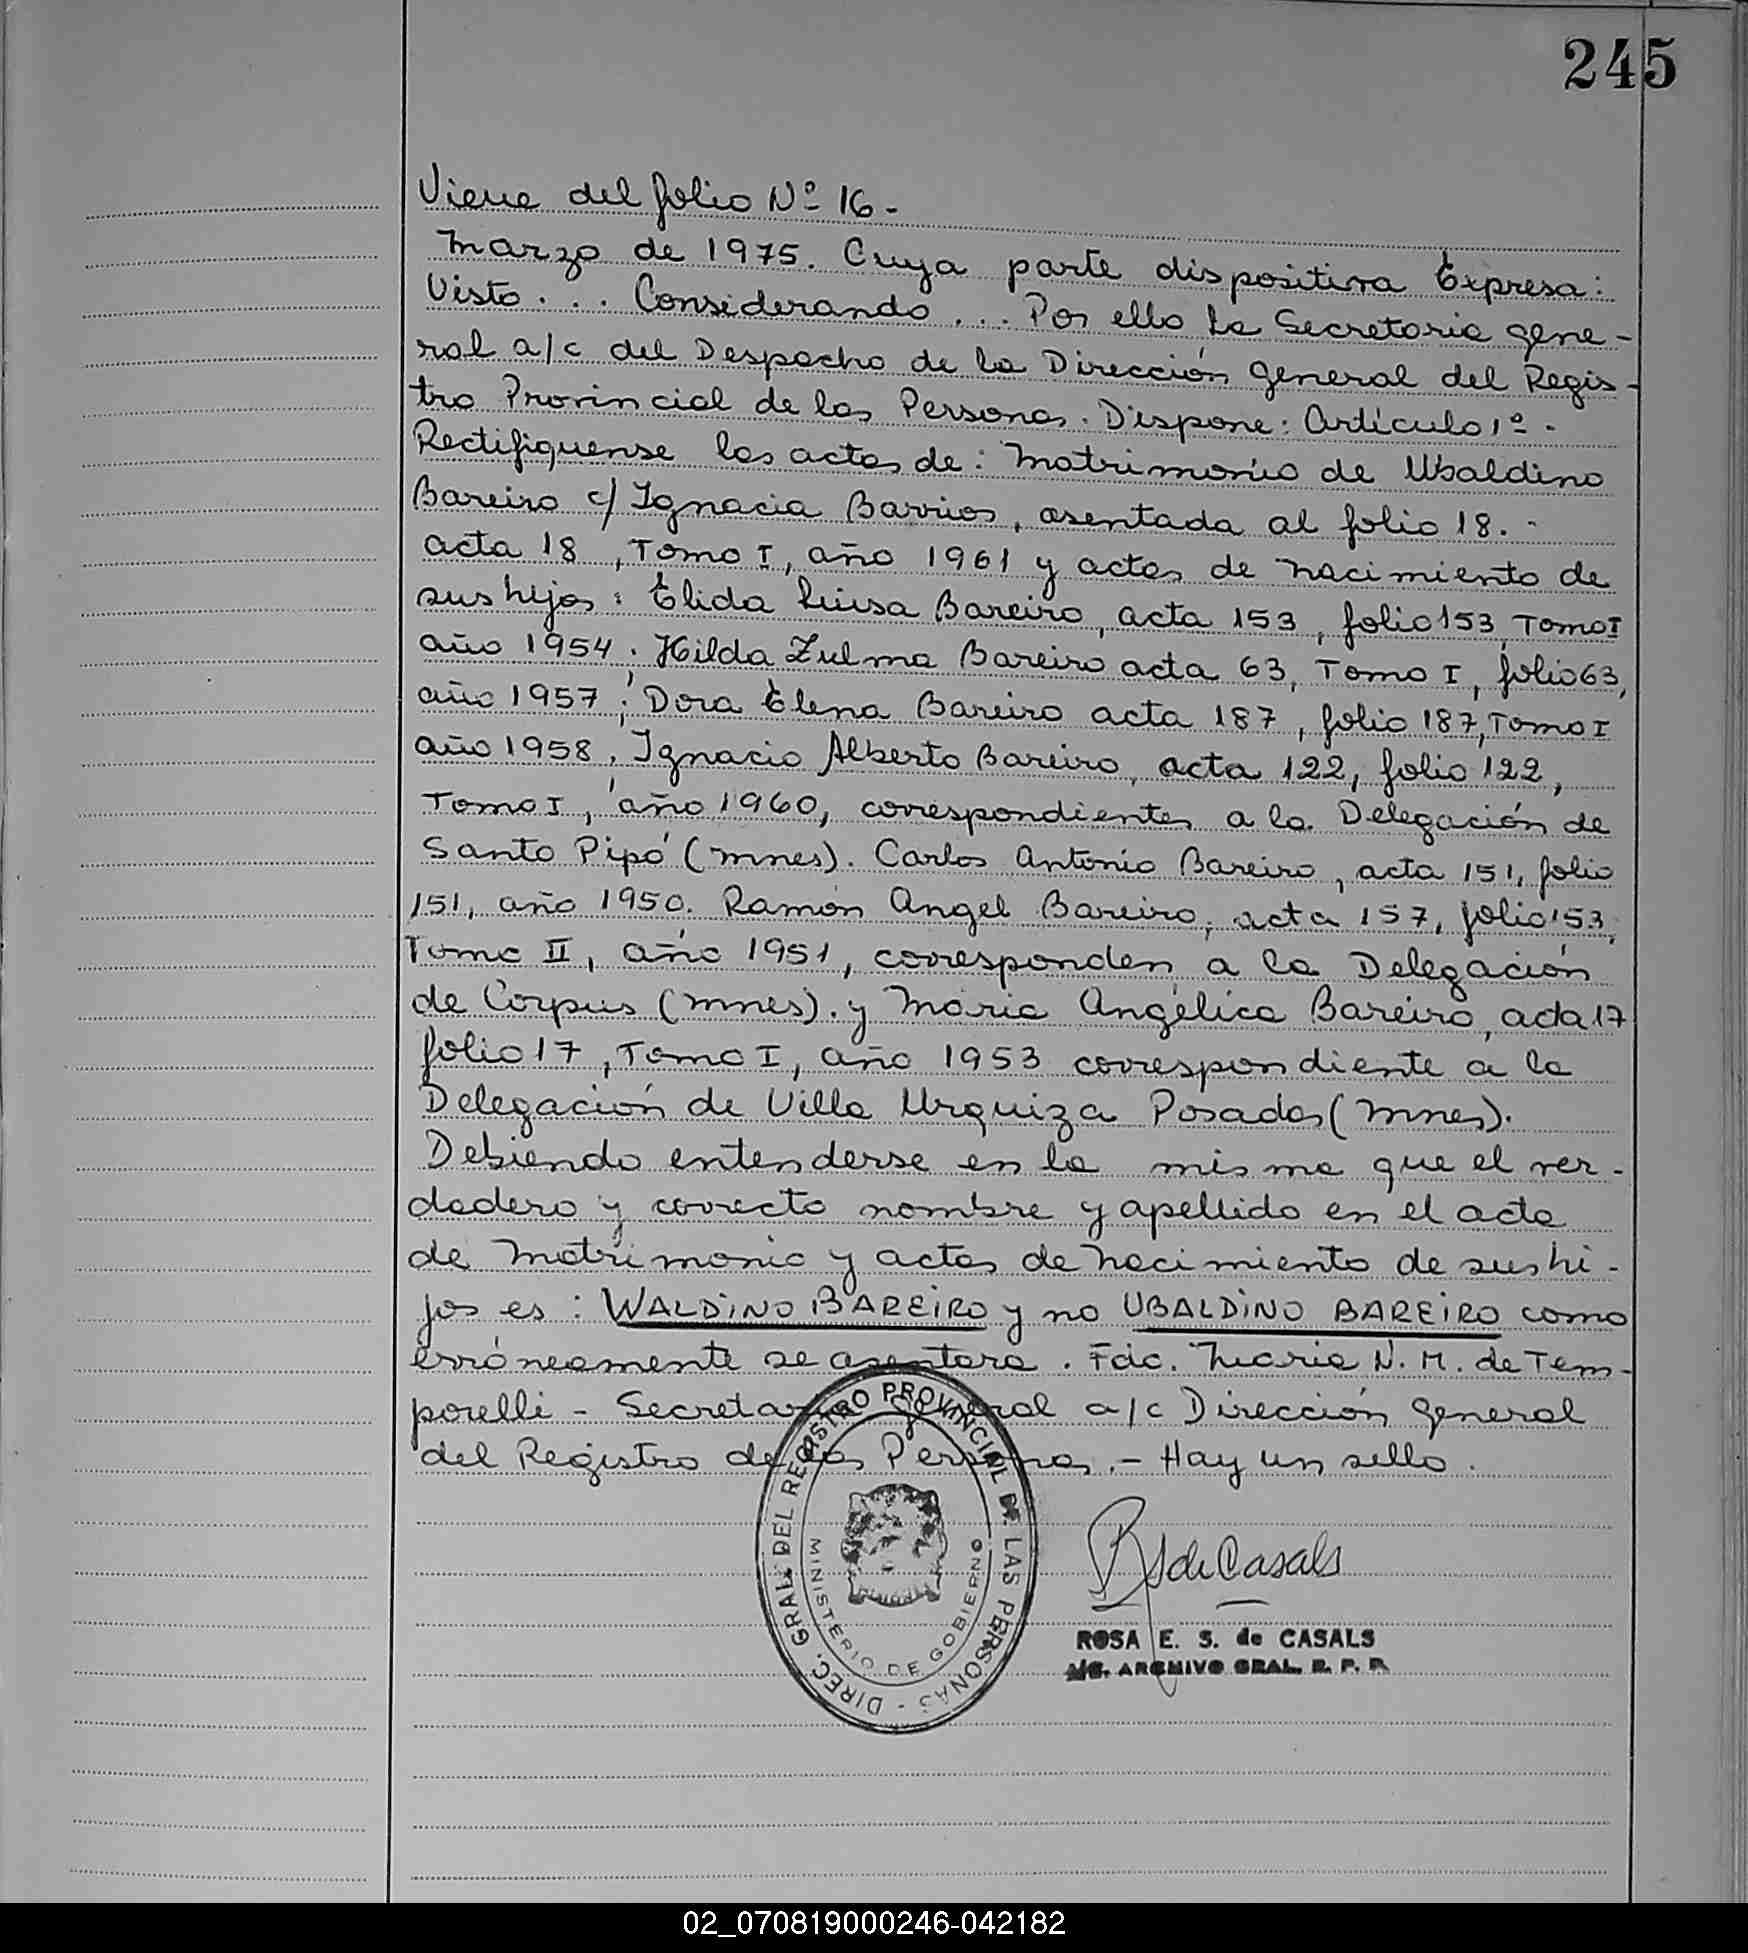 245
Viene del folio Nº 16 -
Marzo de 1975. Cuya parte dispositiva Expresa:
Visto... Considerando... Por ello La Secretaria gene-
ral a/c del Despacho de la Dirección General del Regis-
tro Provincial de las Personas. Dispone: Artículo 1º -
Rectifiquense las actas de: Matrimonio de Ubaldino
Bareiro c/ Ignacia Barrios, asentada al folio 18. -
acta 18, Tomo I, año 1961 y actas de nacimiento de
sus hijos: Elida Luisa Bareiro, acta 153, folio 153, Tomo I
año 1954. Hilda Zulma Bareiro acta 63, Tomo I, folio 63,
año 1957; Dora Elena Bareiro acta 187, folio 187, Tomo I
año 1958, Ignacio Alberto Bareiro, acta 122, folio 122,
Tomo I, año 1960, correspondientes a la Delegación de
Santo Pipó (Mnes). Carlos Antonio Bareiro, acta 151, folio
151, año 1950. Ramón Angel Bareiro, acta 157, folio 153,
Tomo II, año 1951, corresponden a la Delegación
de Corpus (Mnes). y María Angélica Bareiro, acta 17
folio 17, Tomo I, año 1953 correspondiente a la
Delegación de Villa Urquiza Posadas (Mnes).
Debiendo entenderse en la misma que el ver-
dadero y correcto nombre y apellido en el acta
de Matrimonio y actas de nacimiento de sus hi-
jos es: WALDINO BAREIRO y no UBALDINO BAREIRO como
erróneamente se asentara. Fdo. Maria N. M. de Tem-
porelli - Secretaria General a/c Dirección General
del Registro de las Personas. - Hay un sello.
DIREC. GRAL. DEL REGISTRO PROVINCIAL DE LAS PERSONAS -
MINISTERIO DE GOBIERNO
RS de Casals
ROSA E. S. de CASALS
ARCHIVO GRAL. R. P. P.
02_070819000246-042182